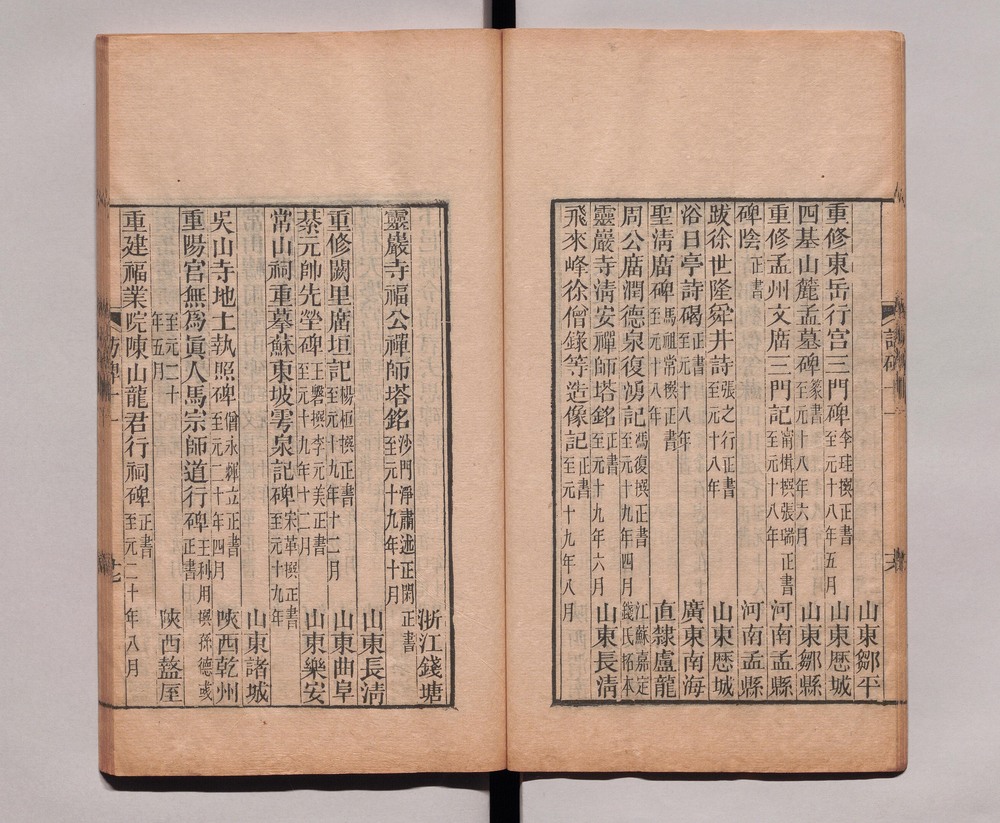 山東鄒平
重修東岳行宮三門碑 李珪撰正書 至元十八年五月 山東歷城
四基山麓孟墓碑 篆書 至元十八年六月 山東鄒縣
重修孟州文廟三門記 甯楫撰張端正書 至元十八年 河南孟縣
碑陰 正書 河南孟縣
跋徐世隆舜井詩 張之行正書 至元十八年 山東歷城
浴日亭詩碣 正書 至元十八年 廣東南海
聖清廟碑 馬祖常撰正書 至元十八年 直隸盧龍
周公廟潤德泉復湧記 馮復撰正書 至元十九年四月 江蘇嘉定錢氏拓本
靈巖寺清安禪師塔銘 正書 至元十九年六月 山東長清
飛來峰徐僧錄等造像記 正書 至元十九年八月
浙江錢塘
靈巖寺福公禪師塔銘 沙門淨肅述正閑正書 至元十九年十月 山東長清
重修闕里廟垣記 楊桓撰正書 至元十九年十二月 山東曲阜
綦元帥先塋碑 王磐撰李元美正書 至元十九年十二月 山東樂安
常山祠重摹蘇東坡雩泉記碑 宋革撰正書 至元十九年 山東諸城
吳山寺地土執照碑 僧永輝立正書 至元二十年四月 陝西乾州
重陽宮無為眞人馬宗師道行碑 王利用撰孫德彧正書 至元二十年五月 陝西盩厔
重建福業院陳山龍君行祠碑 正書 至元二十年八月